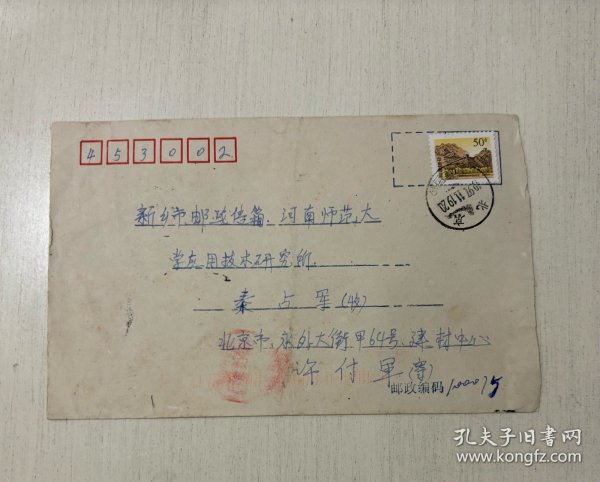 453002
50分
北京
新乡市邮政信箱:河南师范大
学应用技术研究所
秦占军(收)
北京市:东外大街甲64号,建材中心
许付军(寄)
邮政编码100015
孔夫子旧书网
www.kongfz.com